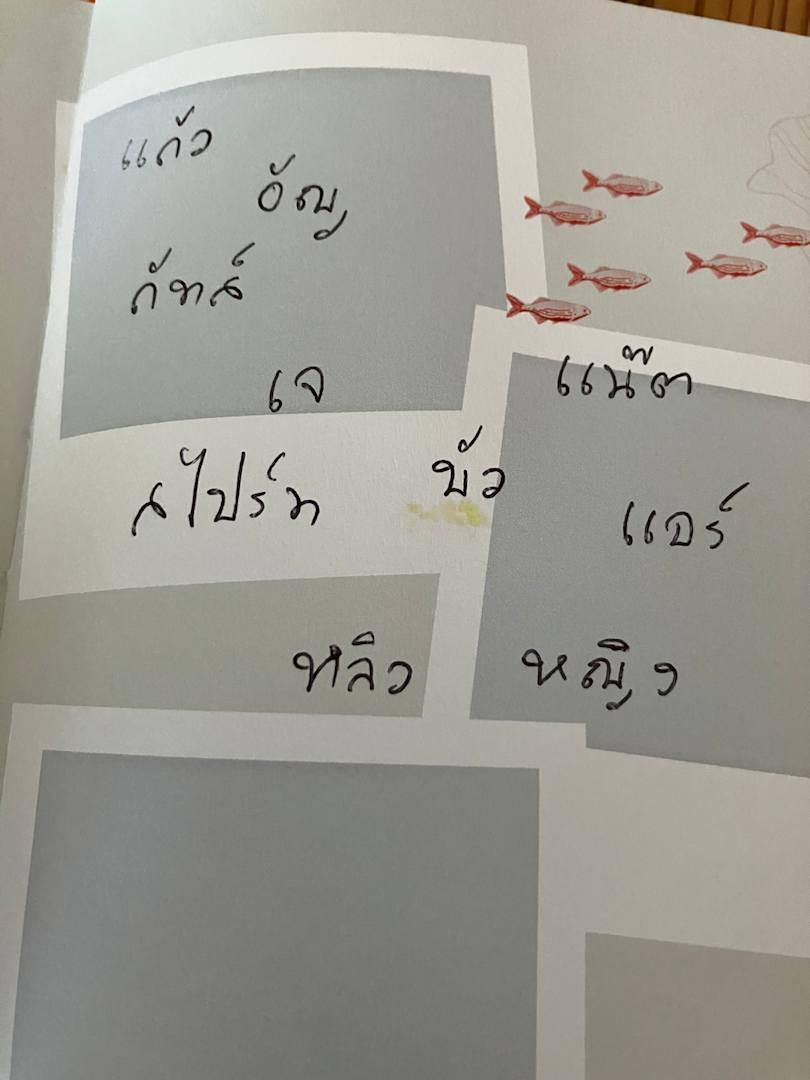 แก้ว
อัญ
ภัทส์
เจ
แน๊ต
บัว
สไปร์ท
แอร์
หลิว
หญิง